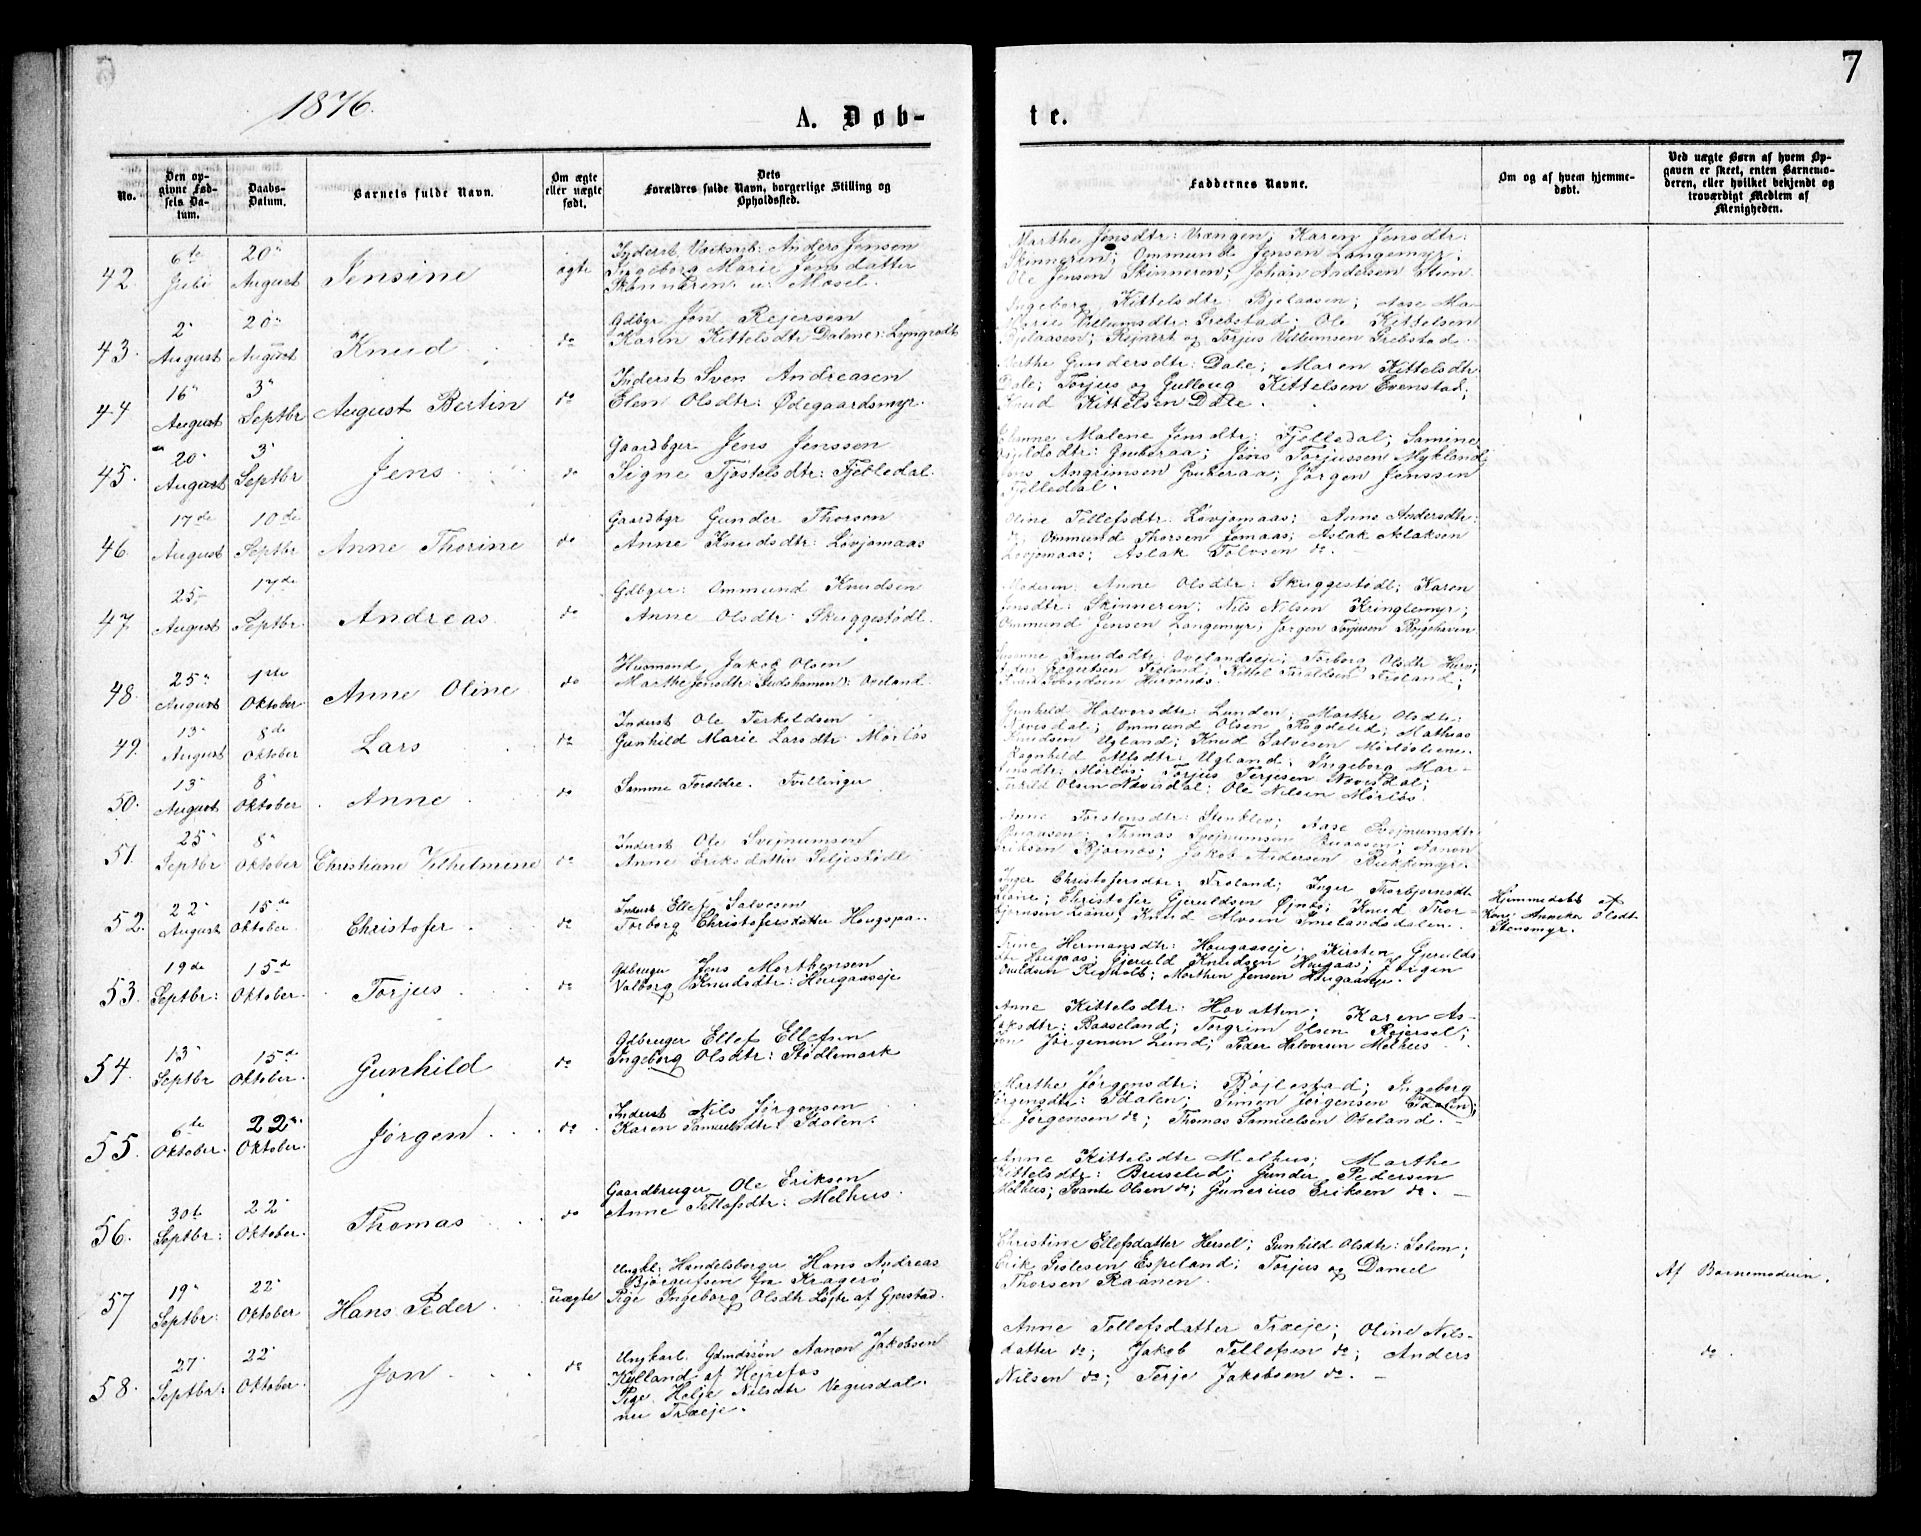 7
1876.
A. Døb-
te.
No.
Den opgivne Fødsels Datum.
Daabs-Datum.
Barnets fulde Navn.
Om ægte eller uægte født.
Dets Forældres fulde Navn, borgerlige Stilling og Opholdssted.
Faddernes Navne.
Om og af hvem hjemmedøbt.
Ved uægte Børn af hvem Opgaven er skeet, enten Barnemoderen, eller hvilket bekjendt og troværdigt Medlem af Menigheden.
42. 6te Juli 20" August Jensine ægte
Inderst Anders Jensen
Ingeborg Marie Jensdatter
Skinneren u: Mosel.
Marthe Jensdtr: Vrængen; Karen Jensdtr:
Skinneren; Ommund Jensen Langemyr;
Ole Jensen Skinneren; Johan Andersen Steen
43. 2" August 20" August Knud do
Gdbgr Jon Rejersen
Karen Kittelsdtr Dalene: Lyngroth
Ingeborg Kittelsdtr: Bjelaasen; Aase Ma-
Villumsdtr: Grebstad; Ole Kittelsen
Bjelaasen; Rejnert og Torjus Villumsen Grebstad.
44 16" August 3" Septbr August Bertin do
Inderst Sven Andreasen
Elen Olsdtr: Ødegaardsmyr.
Gundersdtr: Dale; Maren Kittelsdtr
Dale; Torjus og Gulloug Kittelsen Evenstad;
Knud Kittelsen Dale.
45. 20" August 3" Septbr Jens do
Gaardbgr Jens Jenssen
Signe Tjostelsdtr: Fjelledal.
Malene Jensdtr: Fjelledal; Samine
Gouberaa; Jens Torjussen Mykland;
Angrimsen Gouberaa; Jørgen Jenssen
Fjelledal.
46. 17de August 10de Septbr Anne Thorine do
Gaardbgr Gunder Thorsen
Anne Knudsdtr: Løvjomaas
Oline Tellefsdtr: Løvjomaas; Anne Andersdtr:
Ommund Thorsen Jomaas; Aslak Aslaksen
Løvjomaas; Aslak Tolvsen do. -
47. 25" August 17de Septbr Andreas do
Gdbger: Ommund Knudsen
Anne Olsdtr: Skuggestødl.
Moderen: Anne Olsdtr: Skuggestødl; Karen
Jensdtr: Skinneren; Nils Nilsen Kringlemyr;
Ommund Jensen Langemyr; Jørgen Torjusen Bøgehaven
48. 25" August 1ste Oktober Anne Oline do
Husmand Jakob Olsen
Marthe Jensdtr: Oveland.
Knudsdtr: Ovelandseje; Torborg Olsdtr
Segertsen Froland; Kittel Taraldsen Froland;
49. 13" August 8de Oktober Lars do
Inderst Ole Terkeldsen
Gunhild Marie Larsdtr Mørløs
Gunhild Halvorsdtr: Lunden; Marthe Olsdtr:
Nævisdal; Ommund Olsen Bøgdelid; Mathias
Knudsen Ugland; Knud Salvesen
50. 13" August 8" Oktober Anne do
Samme Foraldre. Tvillinger
Ragnhild Ugland; Ingeborg Mar-
Mørløs; Torjus Terjesen Nævisdal;
Olsen Nævisdal; Ole Nilsen Mørløs.
51. 25" Septbr 8" Oktober Christiane Vilhelmine do
Inderst Ole Svejnumsen
Anne Eriksdatter Seljestødl
Anne Torstensdtr: Stenklev; Aase Svejnumsdtr
Buaasen; Thomas Svejnumsen Buaasen; Aanon
Eriksen Bjørnos; Jakob Andersen Bukkemyr.
52. 22" August 15de Oktober Christofer do
Inderst Ellef Salvesen
Torborg Christofersdatter Hougspa..
Inger Christofersdtr: Froland; Inger Thorbjørnsdt
Liane; Christofer Gjeruldsen Øjnæs; Knud Thor-
bjørnsen Liane; Knud Alvsen Smelandsdalen.
Hjemmedøbt af
Kone Annika Olsdt
Stensmyr.
53. 19de Septbr: 15de Oktober Torjus do
Gdbruger Jens Morthensen
Valborg Knudsdtr: Hougaaseje
Trine Hermansdtr: Hougaaseje; Kirsten Gjerulds
Hougaas; Gjeruld Knudsen Hougaas; Jørgen
Morthen Jensen Hougaaseje.
54. 13" Septbr 15de Oktober Gunhild do
Gdbruger Ellef Ellefsen
Ingeborg Olsdtr: Stødlemark
Anne Kittelsdtr: Hovatten; Karen As-
laksdtr: Baaseland; Torgrim Olsen Rejersel;
Jon Jørgensen Lund; Peder Halvorsen Melhus.
55. 6te Oktober 22" Oktober Jørgen do
Inderst Nils Jørgensen
Karen Samuelsdtr: Idalen.
Marthe Jørgensdtr: Bøjlestad; Ingeborg
Jørgensdtr: Idalen; Simen Jørgensen Idalen;
Jørgensen do; Thomas Samuelsen Oveland. -
56. 30te Septbr: 22" Oktober Thomas do
Gaardbruger Ole Eriksen
Anne Tellefsdtr: Melhus.
Anne Kittelsdtr Melhus; Marthe
Kittelsdtr: Bruselid; Gunder Pedersen
Melhus; Svante Olsen do; Gunerius Eriksen do. -
57 19" Septbr: 22" Oktober Hans Peder uægte
Ungkl: Handelsborger Hans Andreas
Bjørgufsen fra Kragerø
Pige Ingeborg Olsdtr Løjte af Gjerstad.
Christine Ellefsdatter Hersel; Gunhild Olsdtr: Solem;
Erik Gislesen Espeland; Torjus og Daniel
Thorsen Raanen.
Af Barnemoderen.
58. 27" Septbr: 22" Oktober Jon do
Ungkarl Gdmdssøn Aanon Jakobsen
Kylland af Hejrefos
Pige Helje Nilsdtr Vegusdal
nu Træeje.
Anne Tellefsdatter Træeje; Oline Nils-
datter do; Jakob Tellefsen do; Anders
Nilsen do; Terje Jakobsen do. -
do